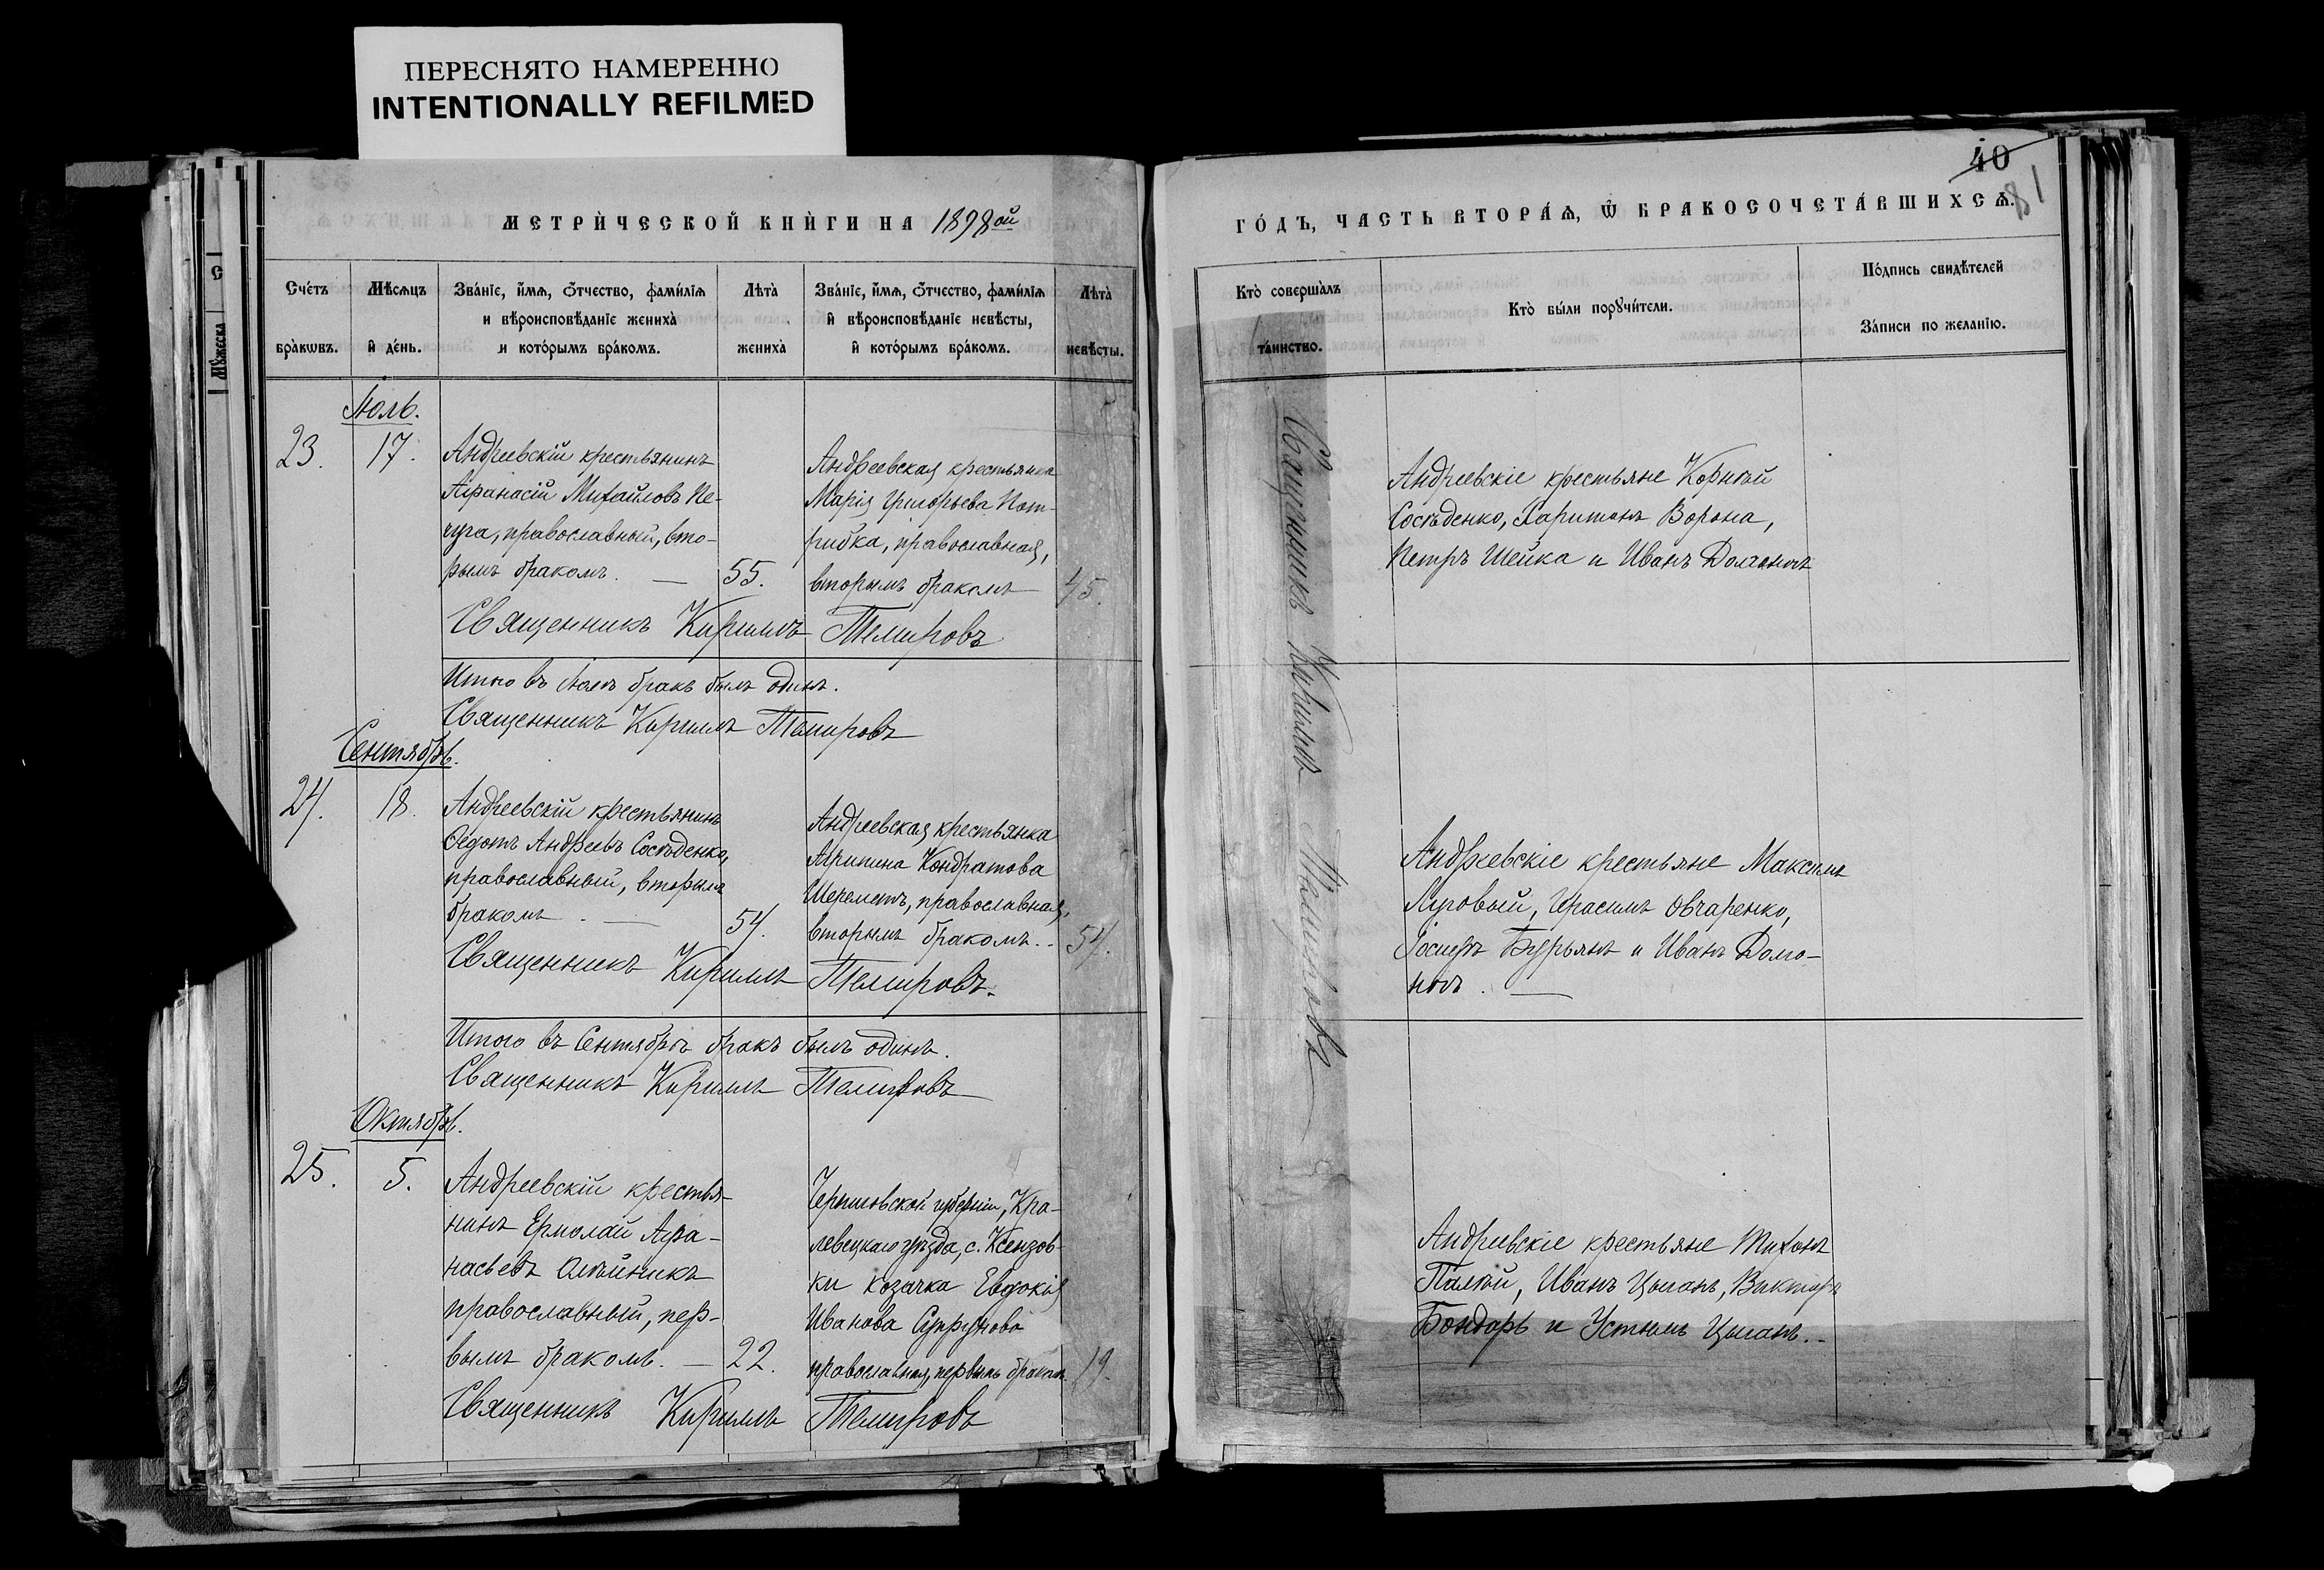 ПЕРЕСНЯТО НАМЕРЕННО
INTENTIONALLY REFILMED
МЕТРИ́ЧЕСКОЙ КНИ́ГИ НА 1898ой
Сче́тъ бра́кωвъ.
Мѣсѧцъ и҆ де́нь.
Зва́нїе, и҆́мѧ, ѻ҆́тчество, фами́лїѧ
и вѣроисповѣ́данїе жениха̀
и кото́рымъ бра́комъ.
Лѣта̀ жениха̀
Зва́нїе, и҆́мѧ, ѻ҆́тчество, фами́лїѧ
и҆ вѣроисповѣ́данїе невѣ́сты,
и҆ кото́рымъ бра́комъ.
Лѣта̀ невѣ́сты.
Іюль.
23. 17.
Андреевскій крестьянинъ
Афанасій Михайловъ Пе-
чуга, православный, вто-
рымъ бракомъ. — 55.
Андреевская крестьянка
Марія Григорьева
православная,
вторымъ бракомъ 45.
Священникъ Кириллъ Темировъ
Итого въ Іюлѣ бракъ былъ одинъ.
Священникъ Кириллъ Темировъ
Сентябрь.
24. 18.
Андреевскій крестьянинъ
Федотъ Андреевъ Сосѣденко,
православный, вторымъ
бракомъ. — 54.
Андреевская крестьянка
Агрипина Кондратова
Шереметъ, православная,
вторымъ бракомъ. 54.
Священникъ Кириллъ Темировъ.
Итого въ Сентябрѣ бракъ былъ одинъ.
Священникъ Кириллъ Темировъ
Октябрь.
25. 5.
Андреевскій крестья-
нинъ Ермолай Афа-
насьевъ Олѣйникъ
православный, пер-
вымъ бракомъ. — 22.
Черниговской губерніи, Кро-
левецкаго уѣзда, с. Ксензов-
ки козачка Евдокія
Иванова Супрунова
православная, первымъ бракомъ 19.
Священникъ Кириллъ Темировъ
40
81
ГО́ДЪ, ЧА́СТЬ ВТОРА́Ѧ, Ѡ҆ БРАКОСОЧЕТА́ВШИХСѦ.
Кто̀ соверша́лъ та́инство.
Кто̀ бы́ли порꙋчи́тели.
По́дпись свидѣ́телей
За́писи по жела́нїю.
Священникъ Кириллъ Темировъ
Андреевскіе крестьяне Корнѣй
Сосѣденко, Харитонъ Ворона,
Петръ Шейка и Иванъ Долгоносъ
Андреевскіе крестьяне Максимъ
Луговый, Герасимъ Овчаренко,
Іосифъ Бурьянъ и Иванъ Долго-
носъ. —
Андреевскіе крестьяне Тихонъ
Палѣй, Иванъ Цыганъ, Викторъ
Бондарь и Устинъ Цыганъ.